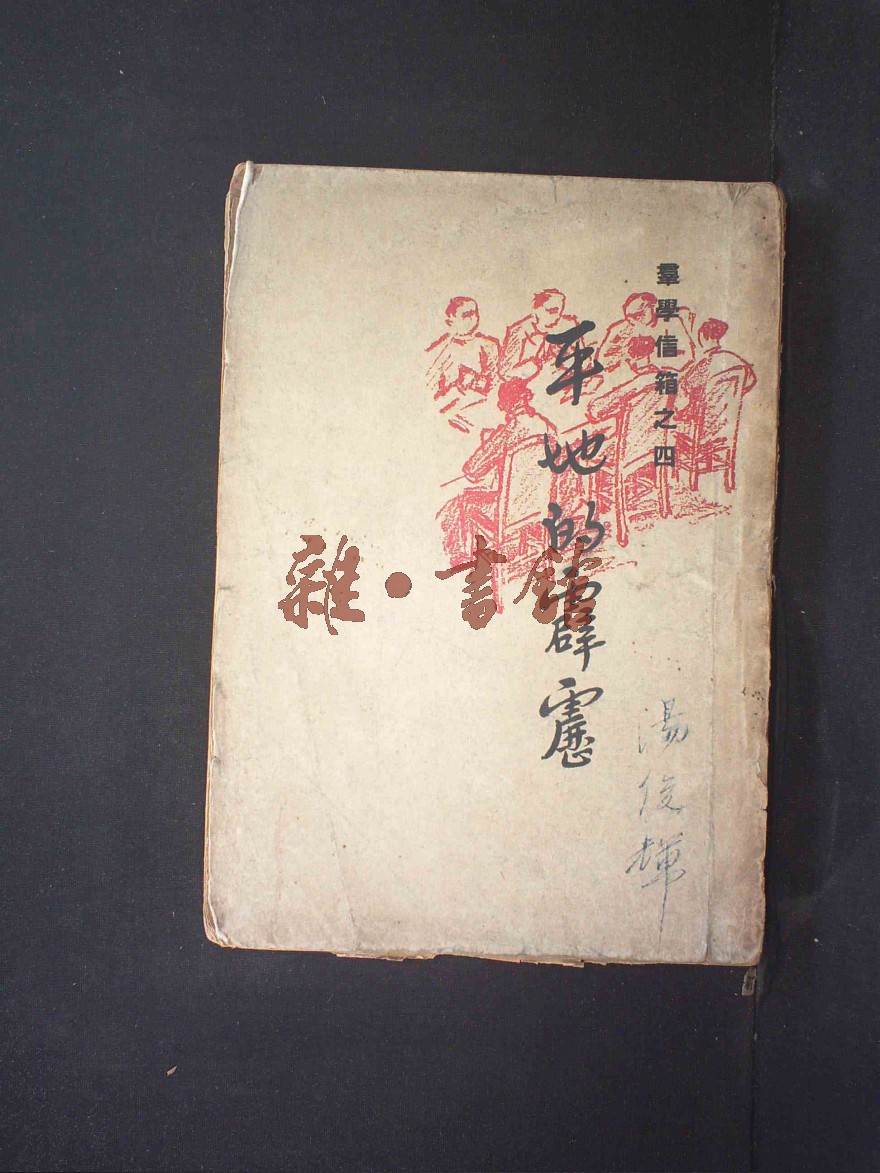 羣學信箱之四
平地的霹靂
湯俊輝
雜·書館